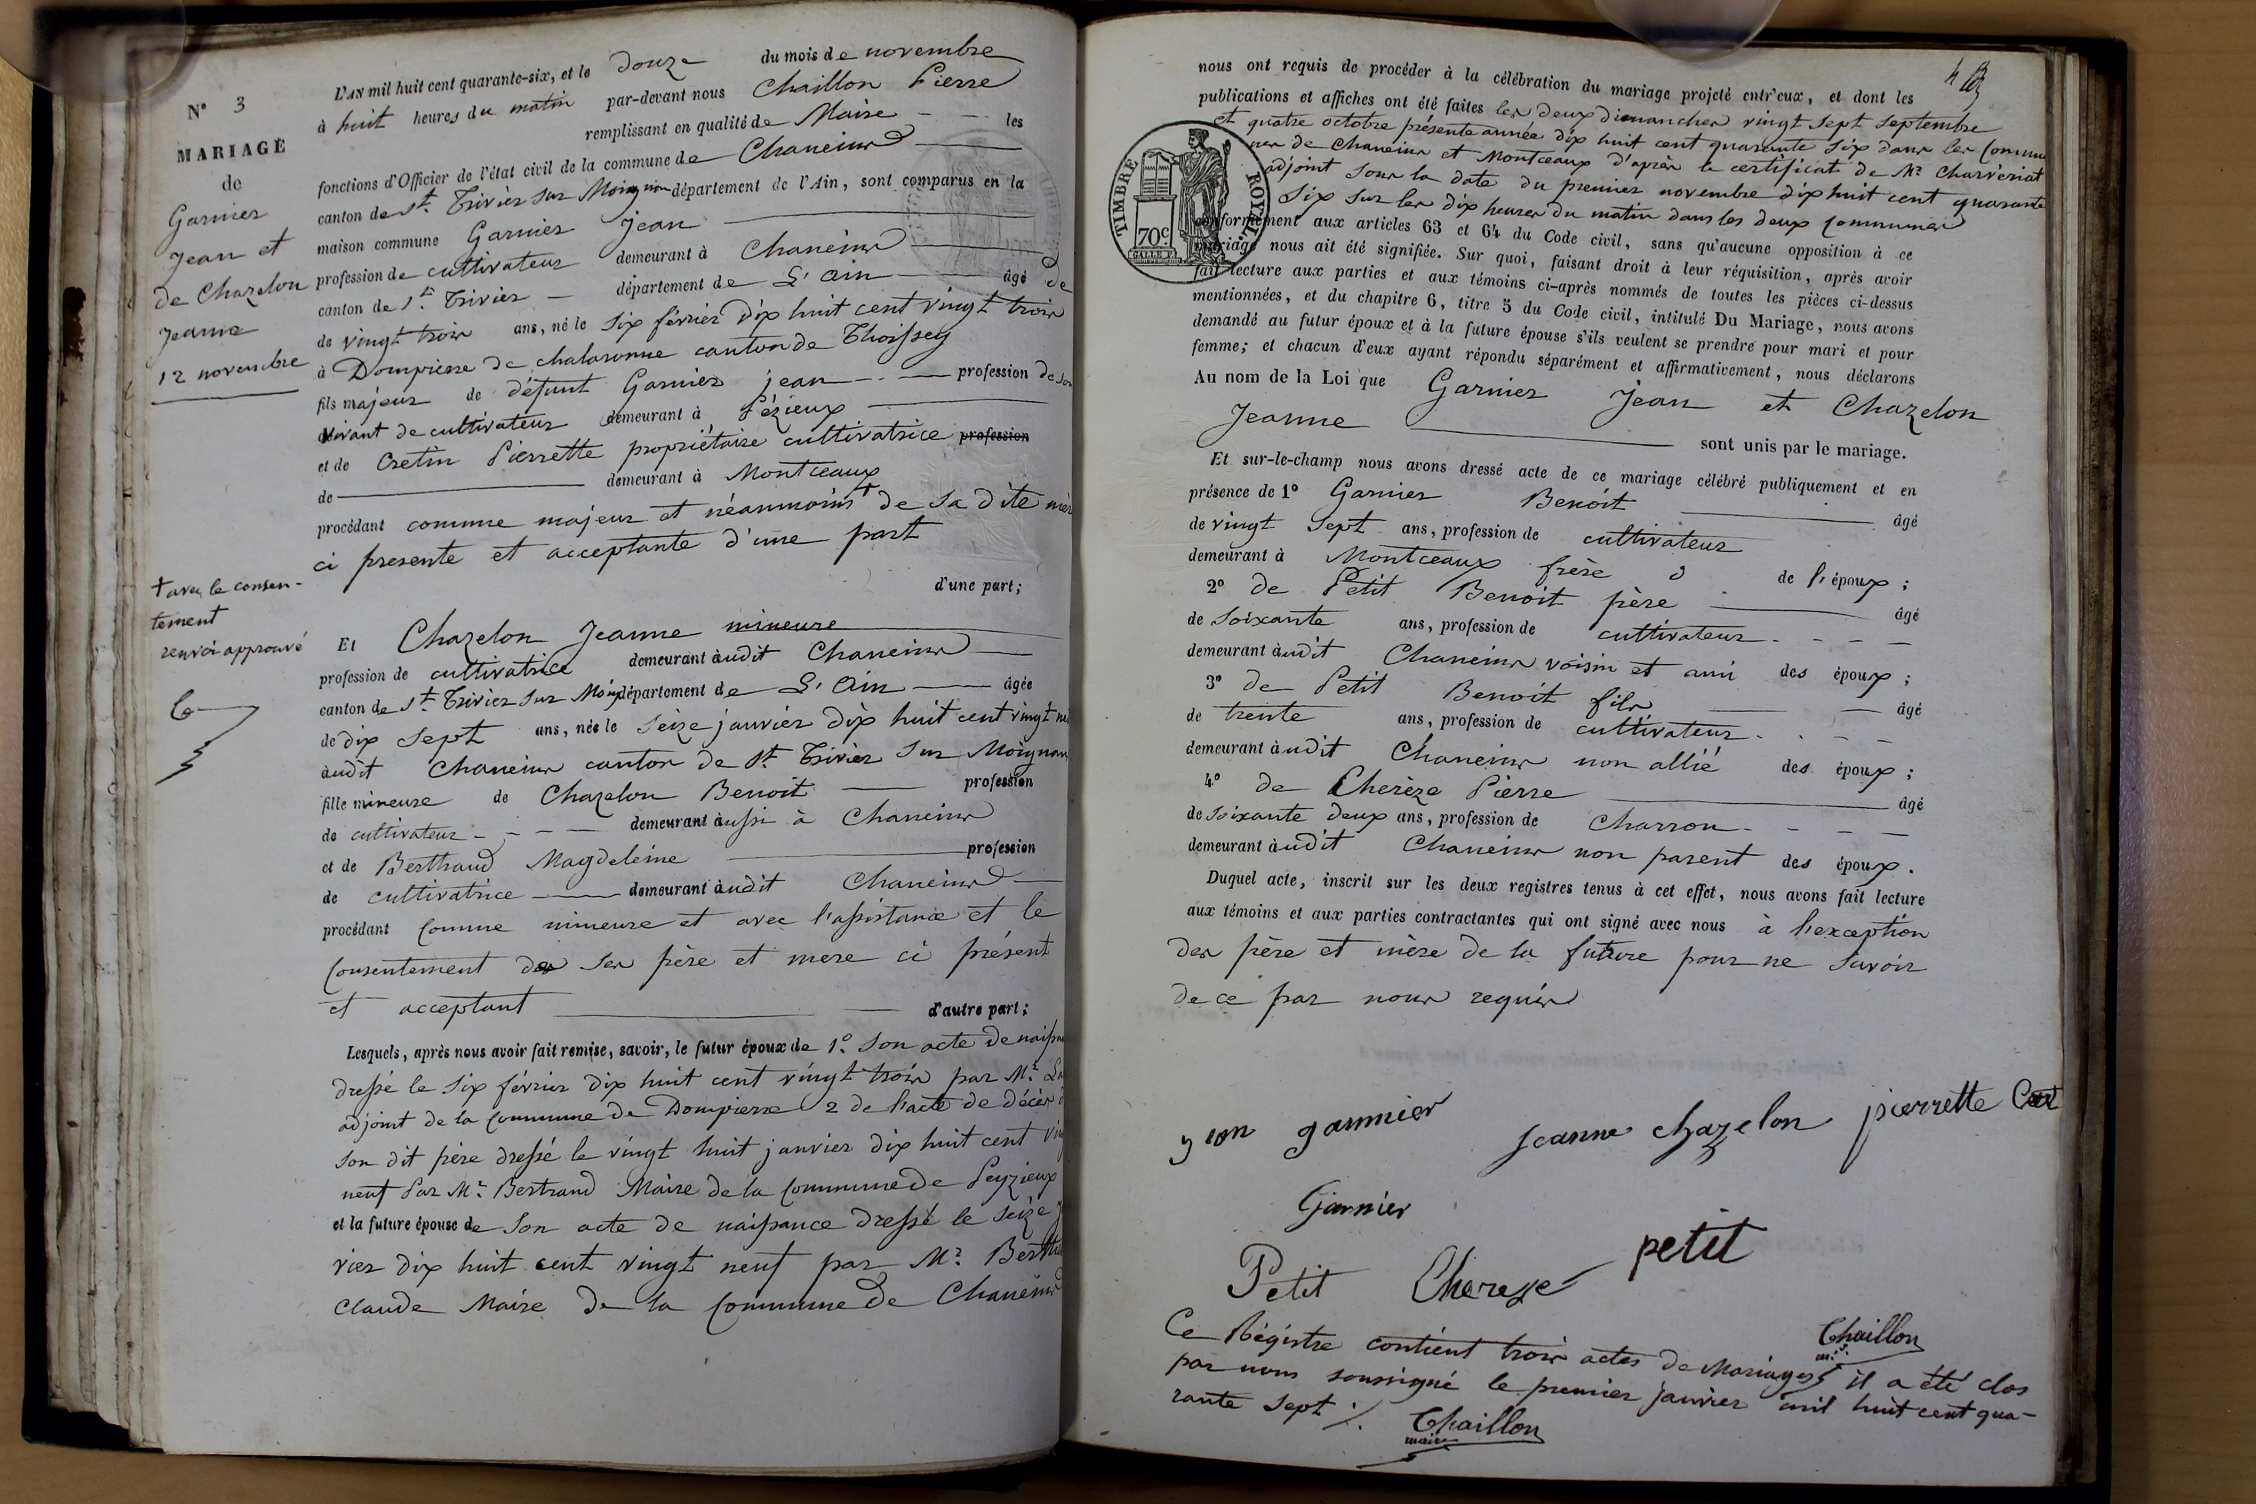 N° 3
MARIAGE
de
Garnier
Jean et
de Chazelon
Jeanne
12 novembre
L'AN mil huit cent quarante-six, et le douze du mois de novembre
à huit heures du matin par-devant nous Chaillon Pierre
remplissant en qualité de Maire les
fonctions d'Officier de l'état civil de la commune de Chaneins
canton de St. Trivier sur Moignans département de l'Ain, sont comparus en la
maison commune Garnier Jean
profession de cultivateur demeurant à Chaneins
canton de St. Trivier département de L'Ain âgé de
de vingt trois ans, né le six février dix huit cent vingt trois
à Dompierre de chalaronne canton de Thoissey
fils majeur de défunt Garnier jean profession de son
vivant de cultivateur demeurant à Pézieux
et de Cretin Pierrette propriétaire cultivatrice profession
de demeurant à Montceaux
procédant comme majeur et néanmoins + de sa dite mère
ci presente et acceptante d'une part
+ avec le consen-
tement
renvoi approuvé
d'une part;
Et Chazelon Jeanne mineure
profession de cultivatrice demeurant àudit Chaneins
canton de St. Trivier sur Moig département de L'Ain âgée
de dix sept ans, née le seize janvier dix huit cent vingt
àudit Chaneins canton de St. Trivier sur Moignans
fille mineure de Chazelon Benoit profession
de cultivateur demeurant àussi à Chaneins
et de Berthaud Magdeleine profession
de cultivatrice demeurant àudit Chaneins
procédant comme mineure et avec l'assistance et le
consentement de ses père et mere ci présent
et acceptant d'autre part;
Lesquels, après nous avoir fait remise, savoir, le futur époux de 1.° son acte de
dressé le six février dix huit cent vingt trois par Mr.
adjoint de la commune de Dompierre 2 de l'acte de décès
son dit père dressé le vingt huit janvier dix huit cent
neuf Par Mr. Bertrand Maire de la commune de Peyzieux
et la future épouse de son acte de naissance dressé le seize
vier dix huit cent vingt neuf par Mr.
claude Maire de la commune de Chaneins
nous ont requis de procéder à la célébration du mariage projeté entr'eux, et dont les
publications et affiches ont été faites les deux dimanches vingt sept septembre
et quatre octobre présente année dix huit cent quarante six dans les commu
nes de Chaneins et Montceaux d'après le certificat de Mr. Charvériat
adjoint sous la date du premier novembre dix huit cent quarante
six sur les dix heures du matin dans les deux communes
TIMBRE ROYAL.
70c
GALLE F.
conformément aux articles 63 et 64 du Code civil, sans qu'aucune opposition à ce
mariage nous ait été signifiée. Sur quoi, faisant droit à leur réquisition, après avoir
fait lecture aux parties et aux témoins ci-après nommés de toutes les pièces ci-dessus
mentionnées, et du chapitre 6, titre 5 du Code civil, intitulé Du Mariage, nous avons
demandé au futur époux et à la future épouse s'ils veulent se prendre pour mari et pour
femme; et chacun d'eux ayant répondu séparément et affirmativement, nous déclarons
Au nom de la Loi que Garnier Jean et Chazelon
Jeanne sont unis par le mariage.
Et sur-le-champ nous avons dressé acte de ce mariage célébré publiquement et en
présence de 1° Garnier Benoit âgé
de vingt sept ans, profession de cultivateur
demeurant à Montceaux frère de l'époux;
2° de Petit Benoit père âgé
de soixante ans, profession de cultivateur
demeurant àudit Chaneins voisin et ami des époux;
3° de Petit Benoit fils âgé
de trente ans, profession de cultivateur
demeurant àudit Chaneins non allié des époux;
4° de Cherèze Pierre âgé
de soixante deux ans, profession de Charron
demeurant àudit Chaneins non parent des époux.
Duquel acte, inscrit sur les deux registres tenus à cet effet, nous avons fait lecture
aux témoins et aux parties contractantes qui ont signé avec nous à l'exception
des père et mère de la future pour ne savoir
de ce par nous requis
garnier
jeanne chazelon pierrette
Garnier
Petit Chereze petit
Chaillon
Ce Régistre contient trois actes de Mariages, il a été clos
par nous soussigné le premier janvier mil huit cent qua-
rante sept
Chaillon
maire